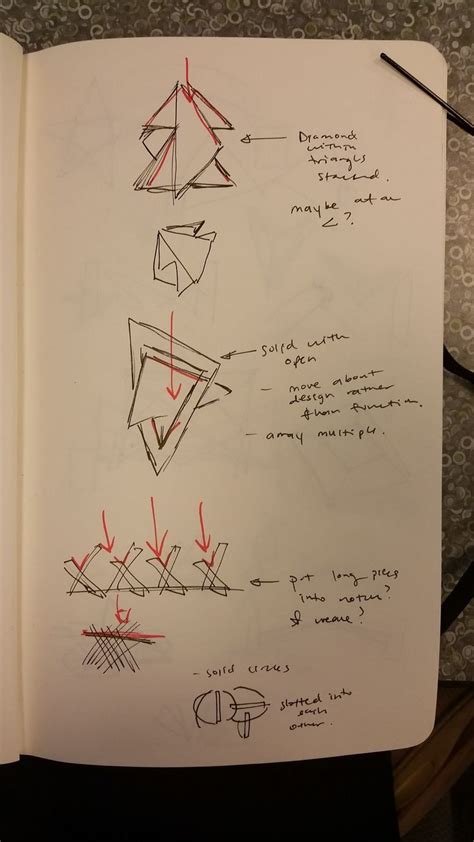 Diamond
within
triangle
stacked.
maybe at an
<?
solid with
open
- move about
design rather
than function.
- array multiple.
put long pieces
into notches?
& weave?
- solid circles
slotted into
each
other.